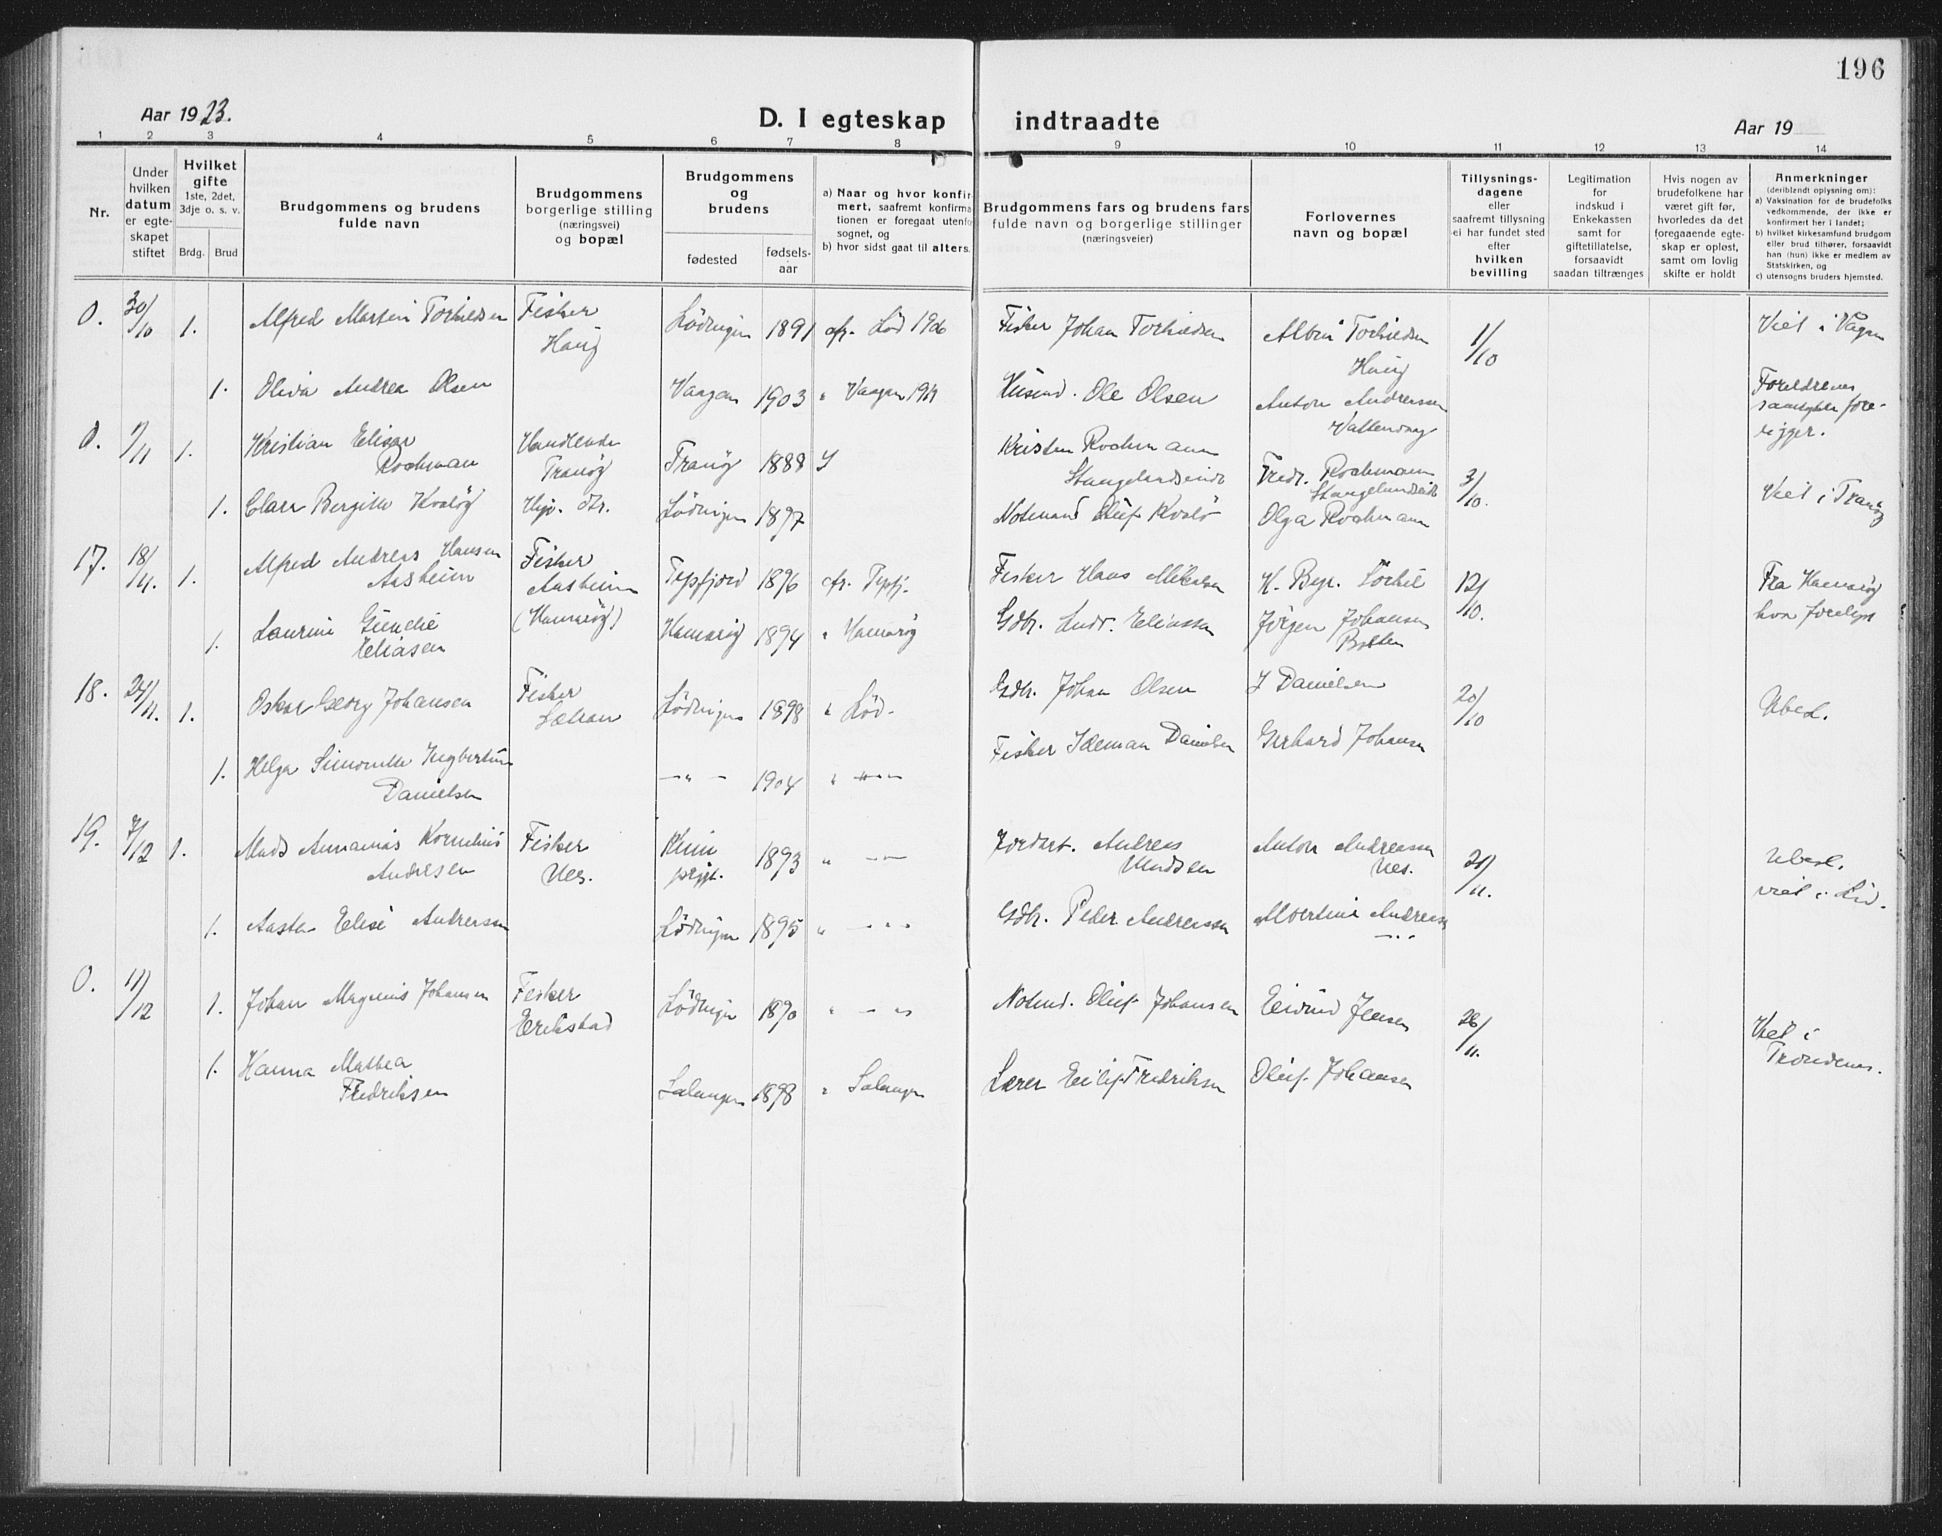 196
Aar 1923.
D. I egteskap indtraadte
Aar 19
1 2 3 4 5 6 7 8 9 10 11 12 13 14
Nr.
Under
hvilken
datum
er egte-
skapet
stiftet
Hvilket
gifte
1ste, 2det,
3dje o. s. v.
Brdg. Brud
Brudgommens og brudens
fulde navn
Brudgommens
borgerlige stilling
(næringsvei)
og bopæl
Brudgommens
og
brudens
fødested
fødsels-
aar
a) Naar og hvor konfir-
mert, saafremt konfirma-
tionen er foregaat utenfor
sognet, og
b) hvor sidst gaat til alters.
Brudgommens fars og brudens fars
fulde navn og borgerlige stillinger
(næringsveier)
Forlovernes
navn og bopæl
Tillysnings-
dagene
eller
saafremt tillysning
ei har fundet sted
efter
hvilken
bevilling
Legitimation
for
indskud i
Enkekassen
samt for
giftetillatelse,
forsaavidt
saadan tiltrænges
Hvis nogen av
brudefolkene har
været gift før,
hvorledes da det
foregaaende egte-
skap er opløst,
samt om lovlig
skifte er holdt
Anmerkninger
(deriblandt oplysning om):
a) Vaksination for de brudefolks
vedkommende, der ikke er
konfirmert her i landet;
b) hvilket kirkesamfund brudgom
eller brud tilhører, forsaavidt
han (hun) ikke er medlem av
Statskirken, og
c) utensogns bruders hjemsted.
0. 30/10 1. Alfred Martin Torkildsen Fisker Haug Lödingen 1891 Löd 1906 Fisker Johan Torkildsen Albin Torkildsen Haug 1/10 Viet i Vågan
1. Oliva Andrea Olsen Vaagan 1903 " Vaagan Ole Olsen Anton Andreassen
Foreldrenes
samtykke fore-
ligger.
0. 1. Kristian Elisar Rochman Handlende Tranöy Tranöy 1888 Kristen Rochmann Stangelandseide Fredr. Rochmann 3/10. Viet i Tranöy
1. Clara Bergitte Kvalöy Lödingen 1897 Notmand Oluf Kvalö Olga Rochmann
17. 18/11. 1. Alfred Andreas Hansen Aasheim Fisker Aasheim (Hamaröy) Tysfjord 1896 Tysfj. Fisker Hans Mikalsen 12/10. Fra Hamaröy
1. Laurine Eliasen Hamaröy 1894 " Hamaröy Gdbr. Andr. Eliassen Jörgen Johansen
18. 24/11. 1. Oskar Georg Johansen Fisker Lödingen 1898 " Löd. Gdbr. Johan Olsen J Danielsen 20/10 Ubesl.
1. Helga Danielsen —"— 1904 " —"— Fisker Danielsen Gerhard Johansen
19. 7/12 1. Mads Annanias Kornelius Andresen Fisker Nes. 1893 " —"— Andreas Madsen Anton Andreassen Nes. Ubesl.
1. Aasta Elise Andreassen Lödingen 1895 " —"— Gdbr. Peder Andreassen Albertine Andreassen —"—
0. 11/12 1. Johan Magnus Johansen Fisker Erikstad Lödingen 1890 " —"— Notmd. Oluf Johansen Eivind Jensen 26/11. Viet i Trondenes.
1. Hanna Mathea Fredriksen Salangen 1898 " Salangen Lærer Eilif Fredriksen Oluf Johansen